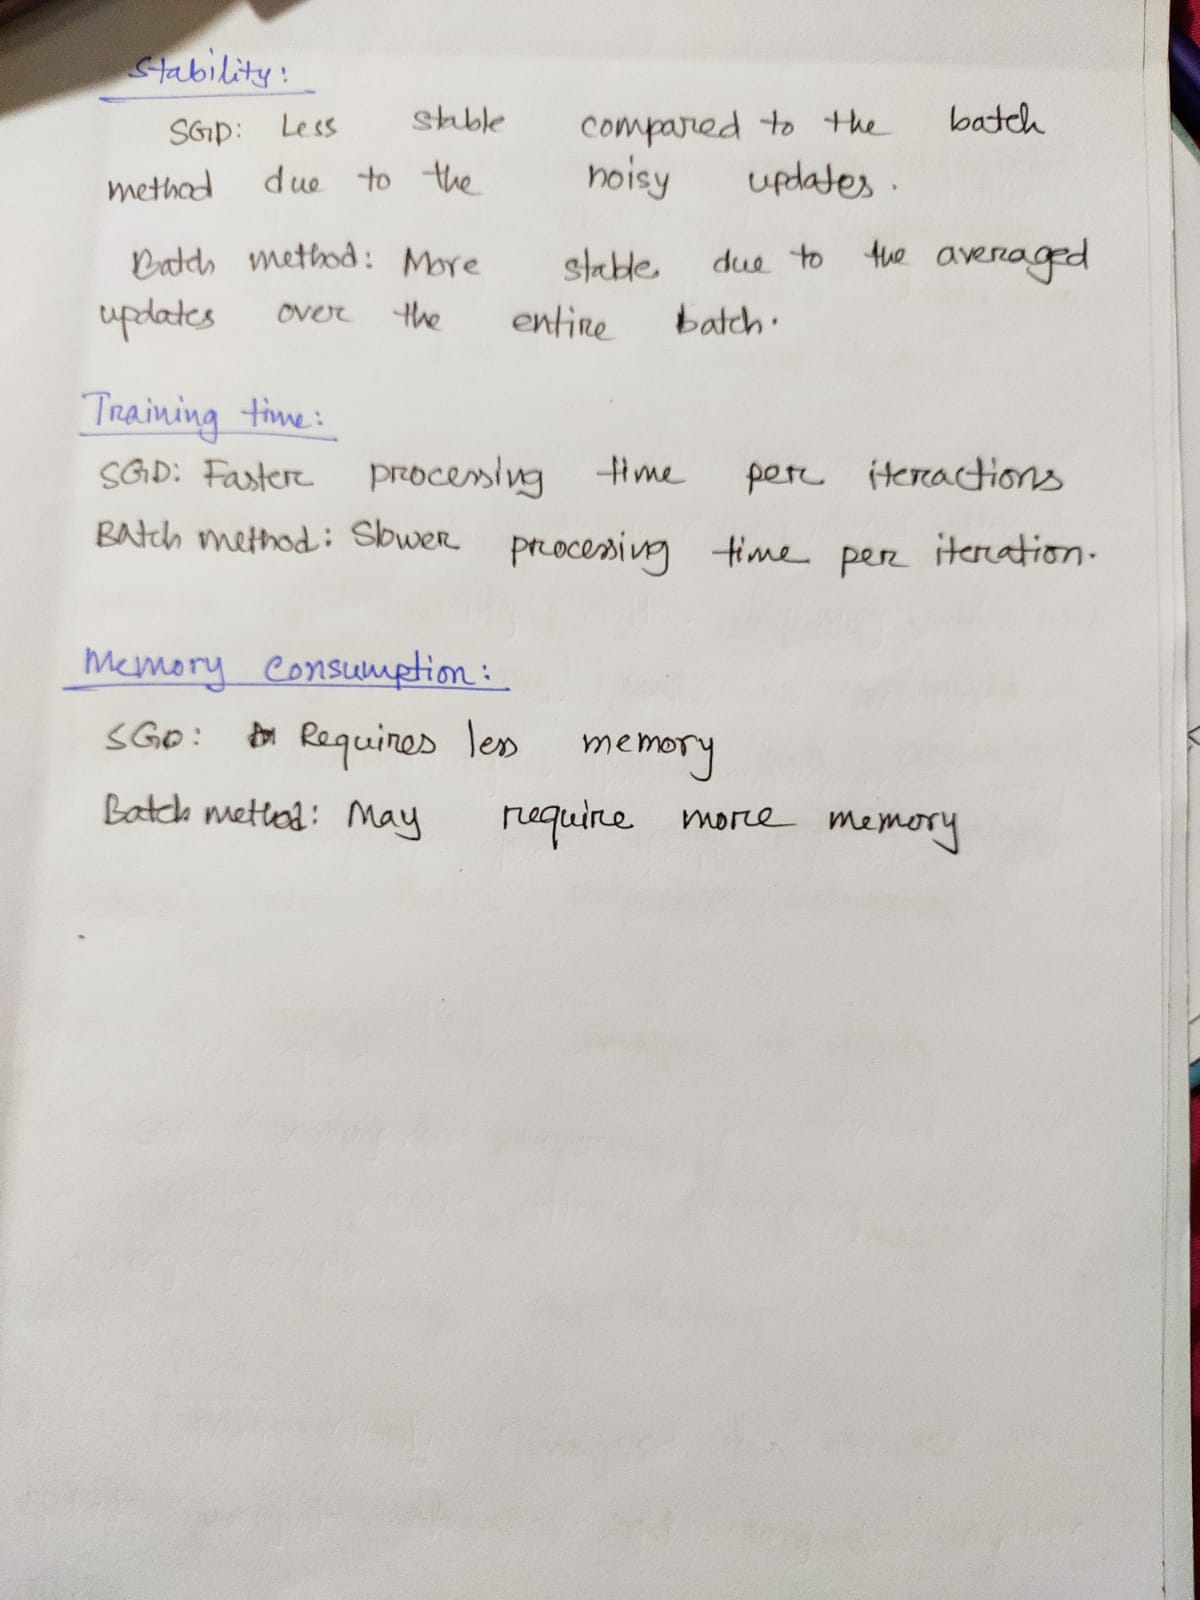 Stability:
SGD: Less stable compared to the batch
method due to the noisy updates.
Batch method: More stable due to the averaged
updates over the entire batch.
Training time:
SGD: Faster processing time per iteractions
BAtch method: Slower processing time per iteration.
Memory Consumption:
SGD: Requires less memory
Batch method: May require more memory